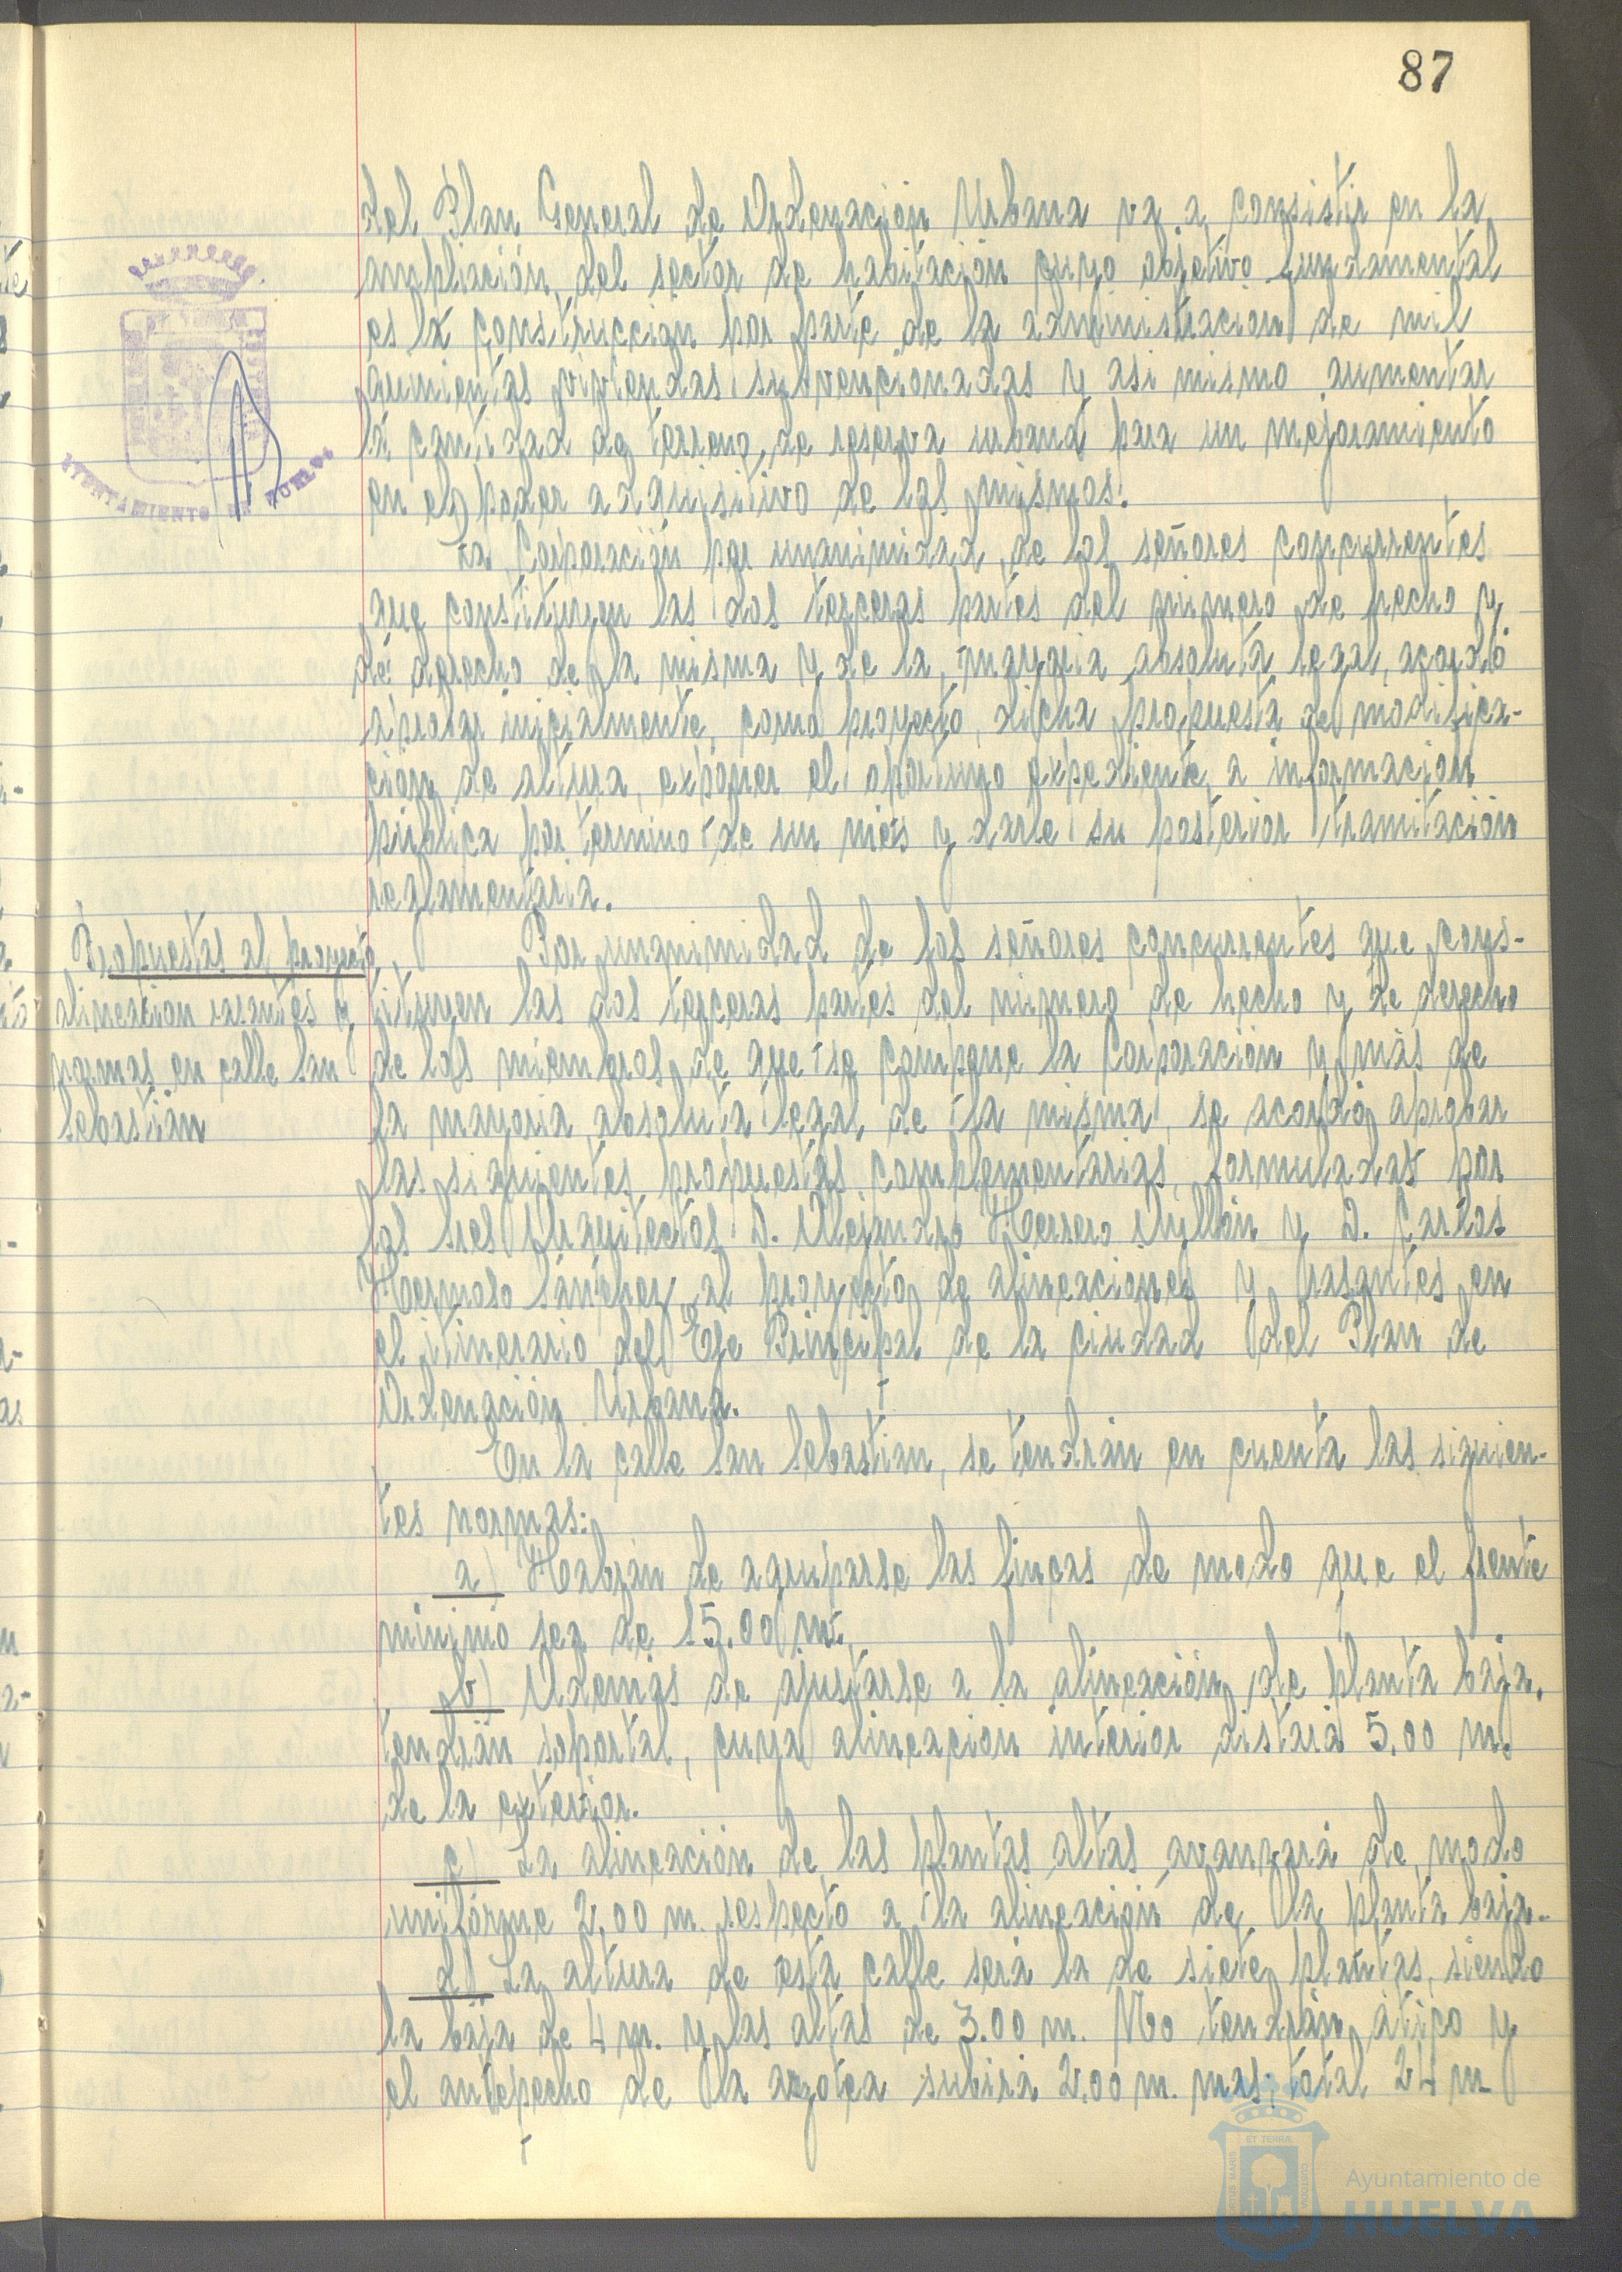 87
del Plan General de Ordenación Urbana va a consistir en la
ampliación del sector de habitación cuyo objetivo fundamental
es la construccion por parte de la administracion de mil
quinientas viviendas subvencionadas y asi mismo aumentar
la cantidad de terreno de reserva urbana para un mejoramiento
en el poder adquisitivo de los mismos.
La Corporación por unanimidad de los señores concurrentes
que constituyen las dos terceras partes del número de hecho y
de derecho de la misma y de la mayoria absoluta legal, acordó
aprobar inicialmente, como proyecto, dicha propuesta de modifica-
ción de altura, exponer el oportuno expediente a información
pública por termino de un mes y darle su posterior tramitación
reglamentaria.
Propuestas al proyecto
alineación rasantes y
normas en calle San
Sebastián
Por unanimidad de los señores concurrentes que cons-
tituyen las dos terceras partes del número de hecho y de derecho
de los miembros de que se compone la Corporación y más de
la mayoria absoluta legal de la misma, se acordó aprobar
las siguientes propuestas complementarias, formuladas por
los Sres Arquitectos D. Alejandro Herrero Ayllón y D. Carlos
Hermoso Sánchez, al proyecto de alineaciones y rasantes en
el itinerario del Eje Principal de la ciudad del Plan de
Ordenación Urbana.
En la calle San Sebastian, se tendrán en cuenta las siguien-
tes normas:
a) Habrán de agruparse las fincas de modo que el frente
minimo sea de 15.00 m.
b) Además de ajustarse a la alineación de planta baja,
tendrán soportal, cuya alineación interior distará 5.00 m.
de la exterior.
c) La alineación de las plantas altas avanzará de modo
uniforme 2.00 m. respecto a la alineación de la planta baja.
d) La altura de esta calle será la de siete plantas, siendo
la baja de 4 m. y las altas de 3.00 m. No tendrán ático y
el antepecho de la azotea subirá 2.00 m. mas; total 24 m
AYUNTAMIENTO DE HUELVA
Ayuntamiento de
HUELVA